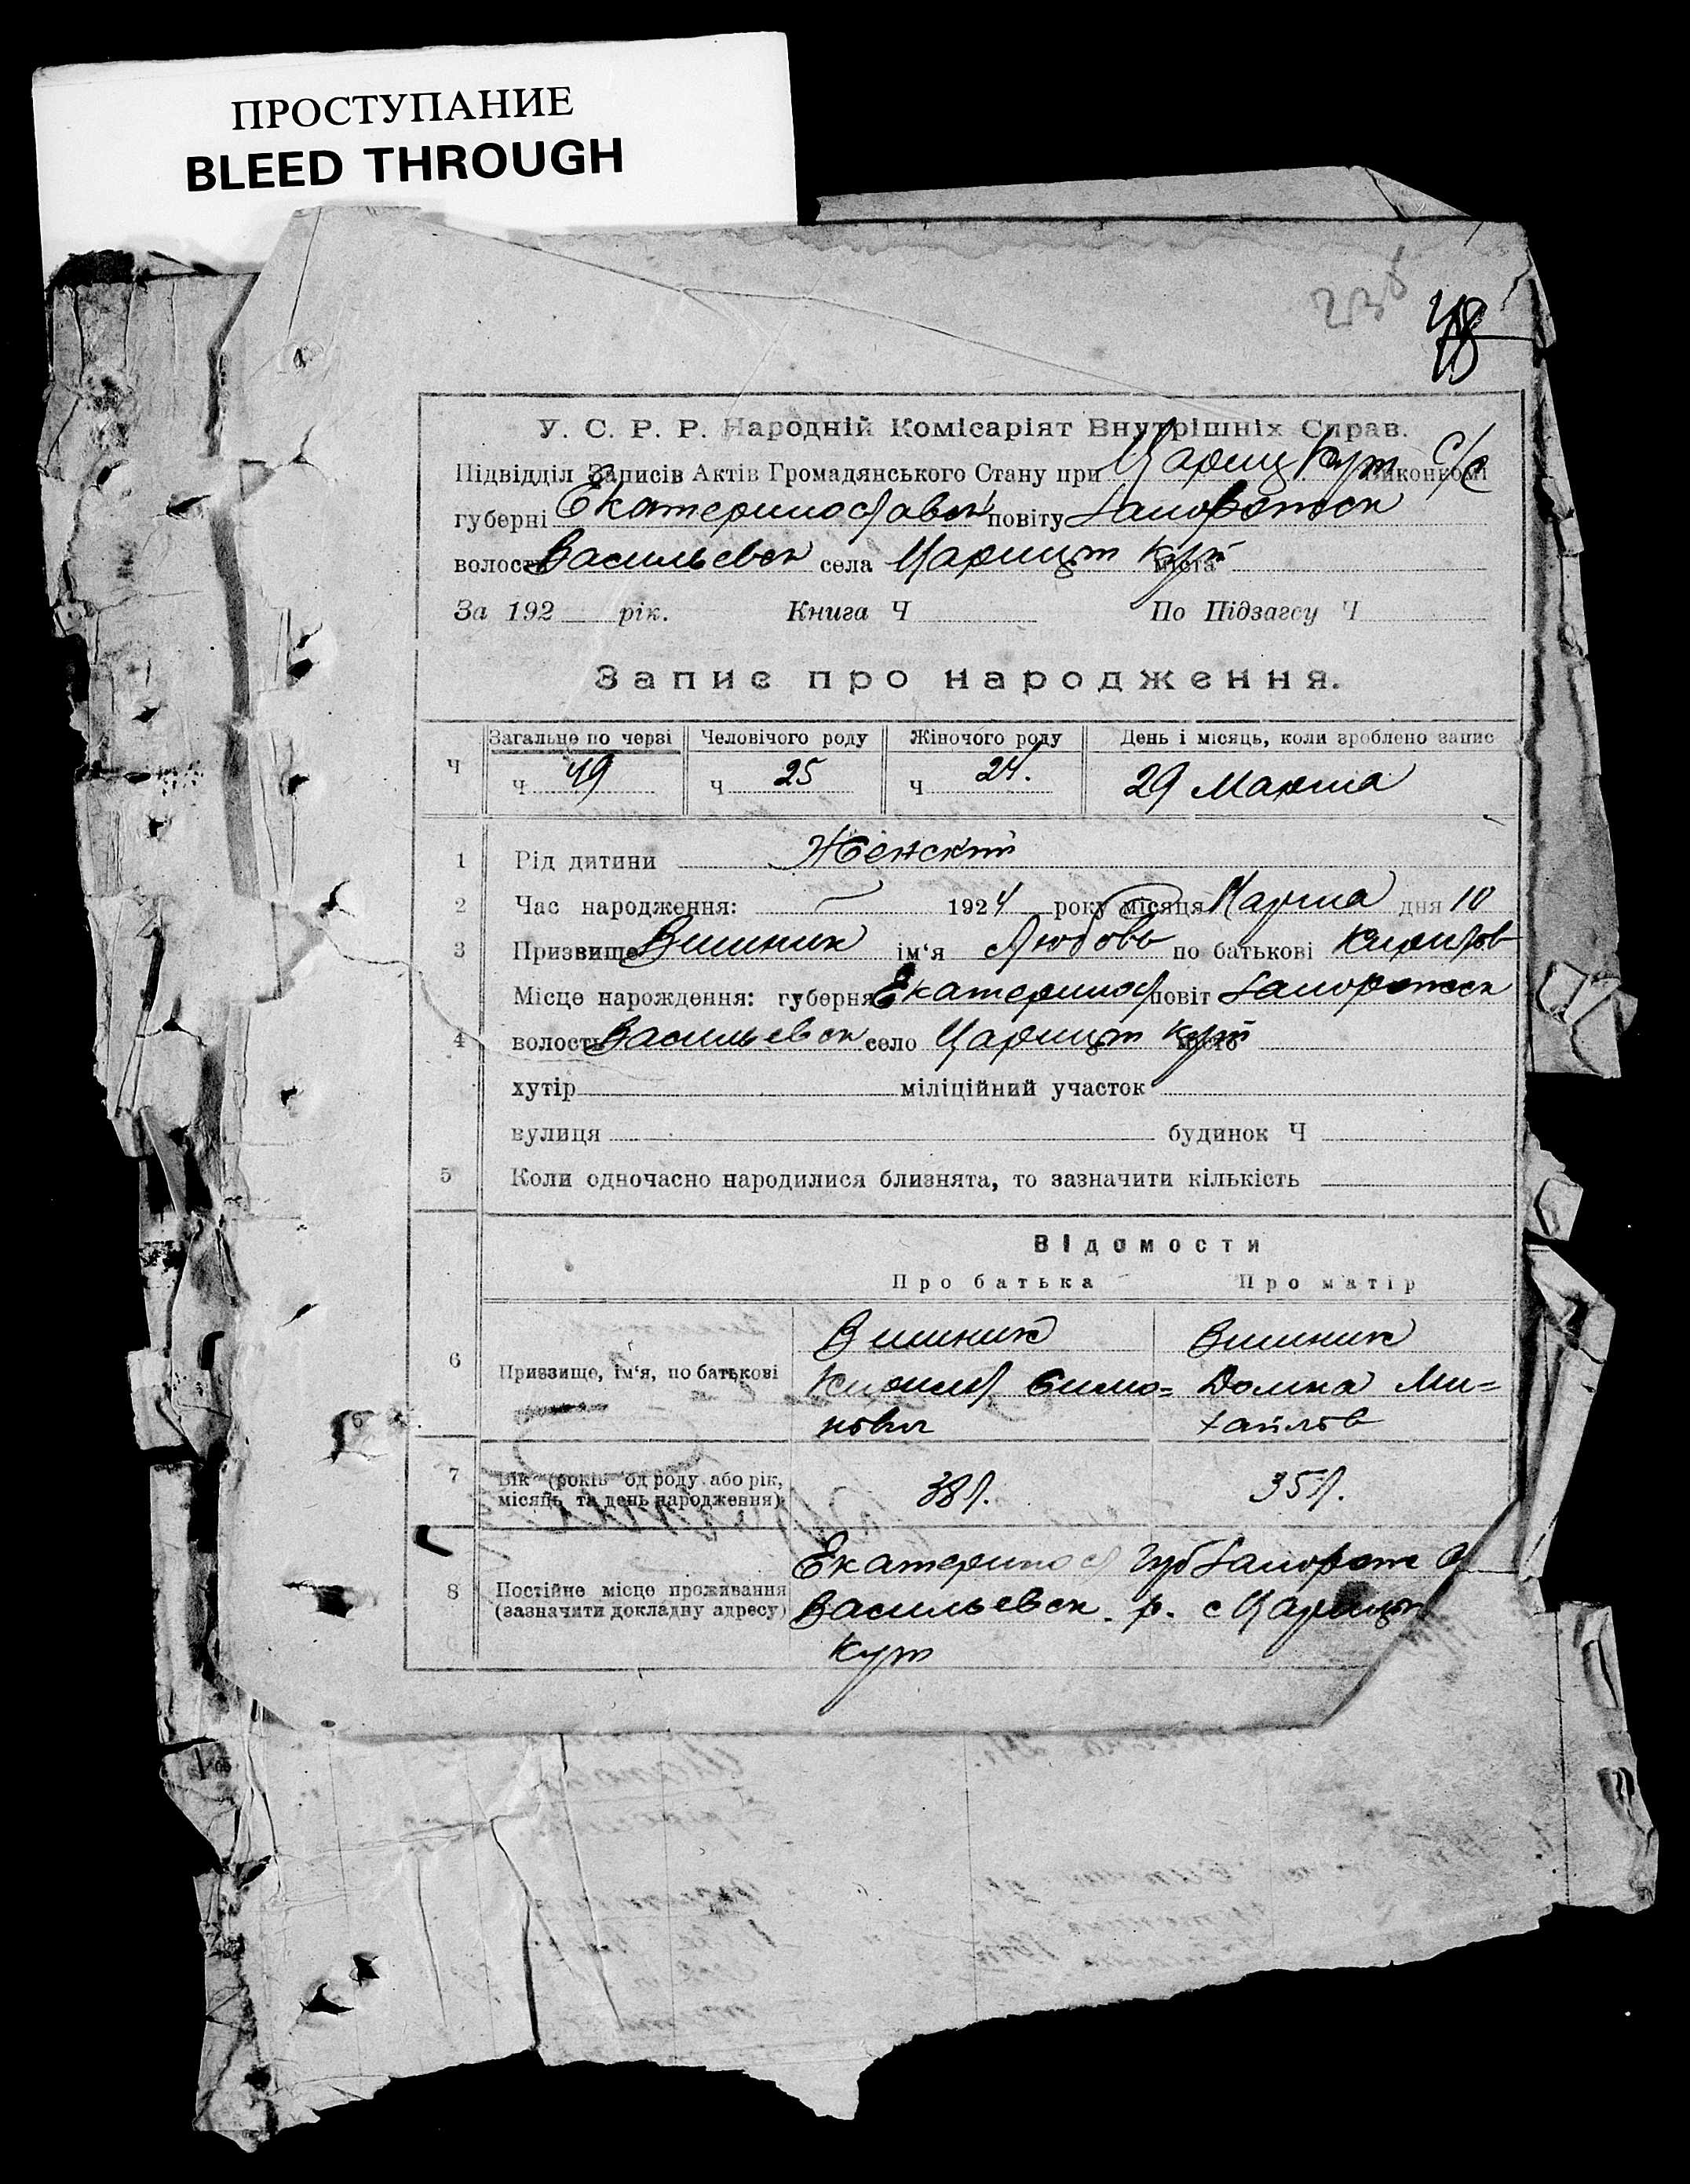 ПРОСТУПАНИЕ
BLEED THROUGH
23
У. С. Р. Р. Народній Комісаріят Внутрішніх Справ.
Підвідділ Записів Актів Громадянського Стану при Цариц Кут С/С Виконкомі
губерні Екатеринославск повіту Запорожск
волости Васильевск села Царицын Кут міста
За 192 рік. Книга Ч По Підзагсу Ч
Запис про народження.
Ч Загальне по черзі Человічого роду Жіночого роду День і місяць, коли зроблено запис
Ч 49 Ч 25 Ч 24. 29 Марта
1 Рід дитини Женский
2 Час народження: 1924 року місяця Марта дня 10
3 Призвище ім‘я Любовь по батькові Кирилов
Місце нарождення: губерня Екатериносл повіт Запорожск
4 волость Васильевск село Царицын Кут місто
хутір міліційний участок
вулиця будинок Ч
5 Коли одночасно народилися близнята, то зазначити кількість
Відомости
Про батька Про матір
6 Призвище, ім‘я, по батькові
Кирилл Симо= Домна Ми=
нович хайлов
7 Вік (років од роду або рік, місяць та день народження) 38 л. 35 л.
Екатеринос Губ Запорож
8 Постійне місце проживання (зазначити докладну адресу) Васильевск. р. с Царицын
Кут